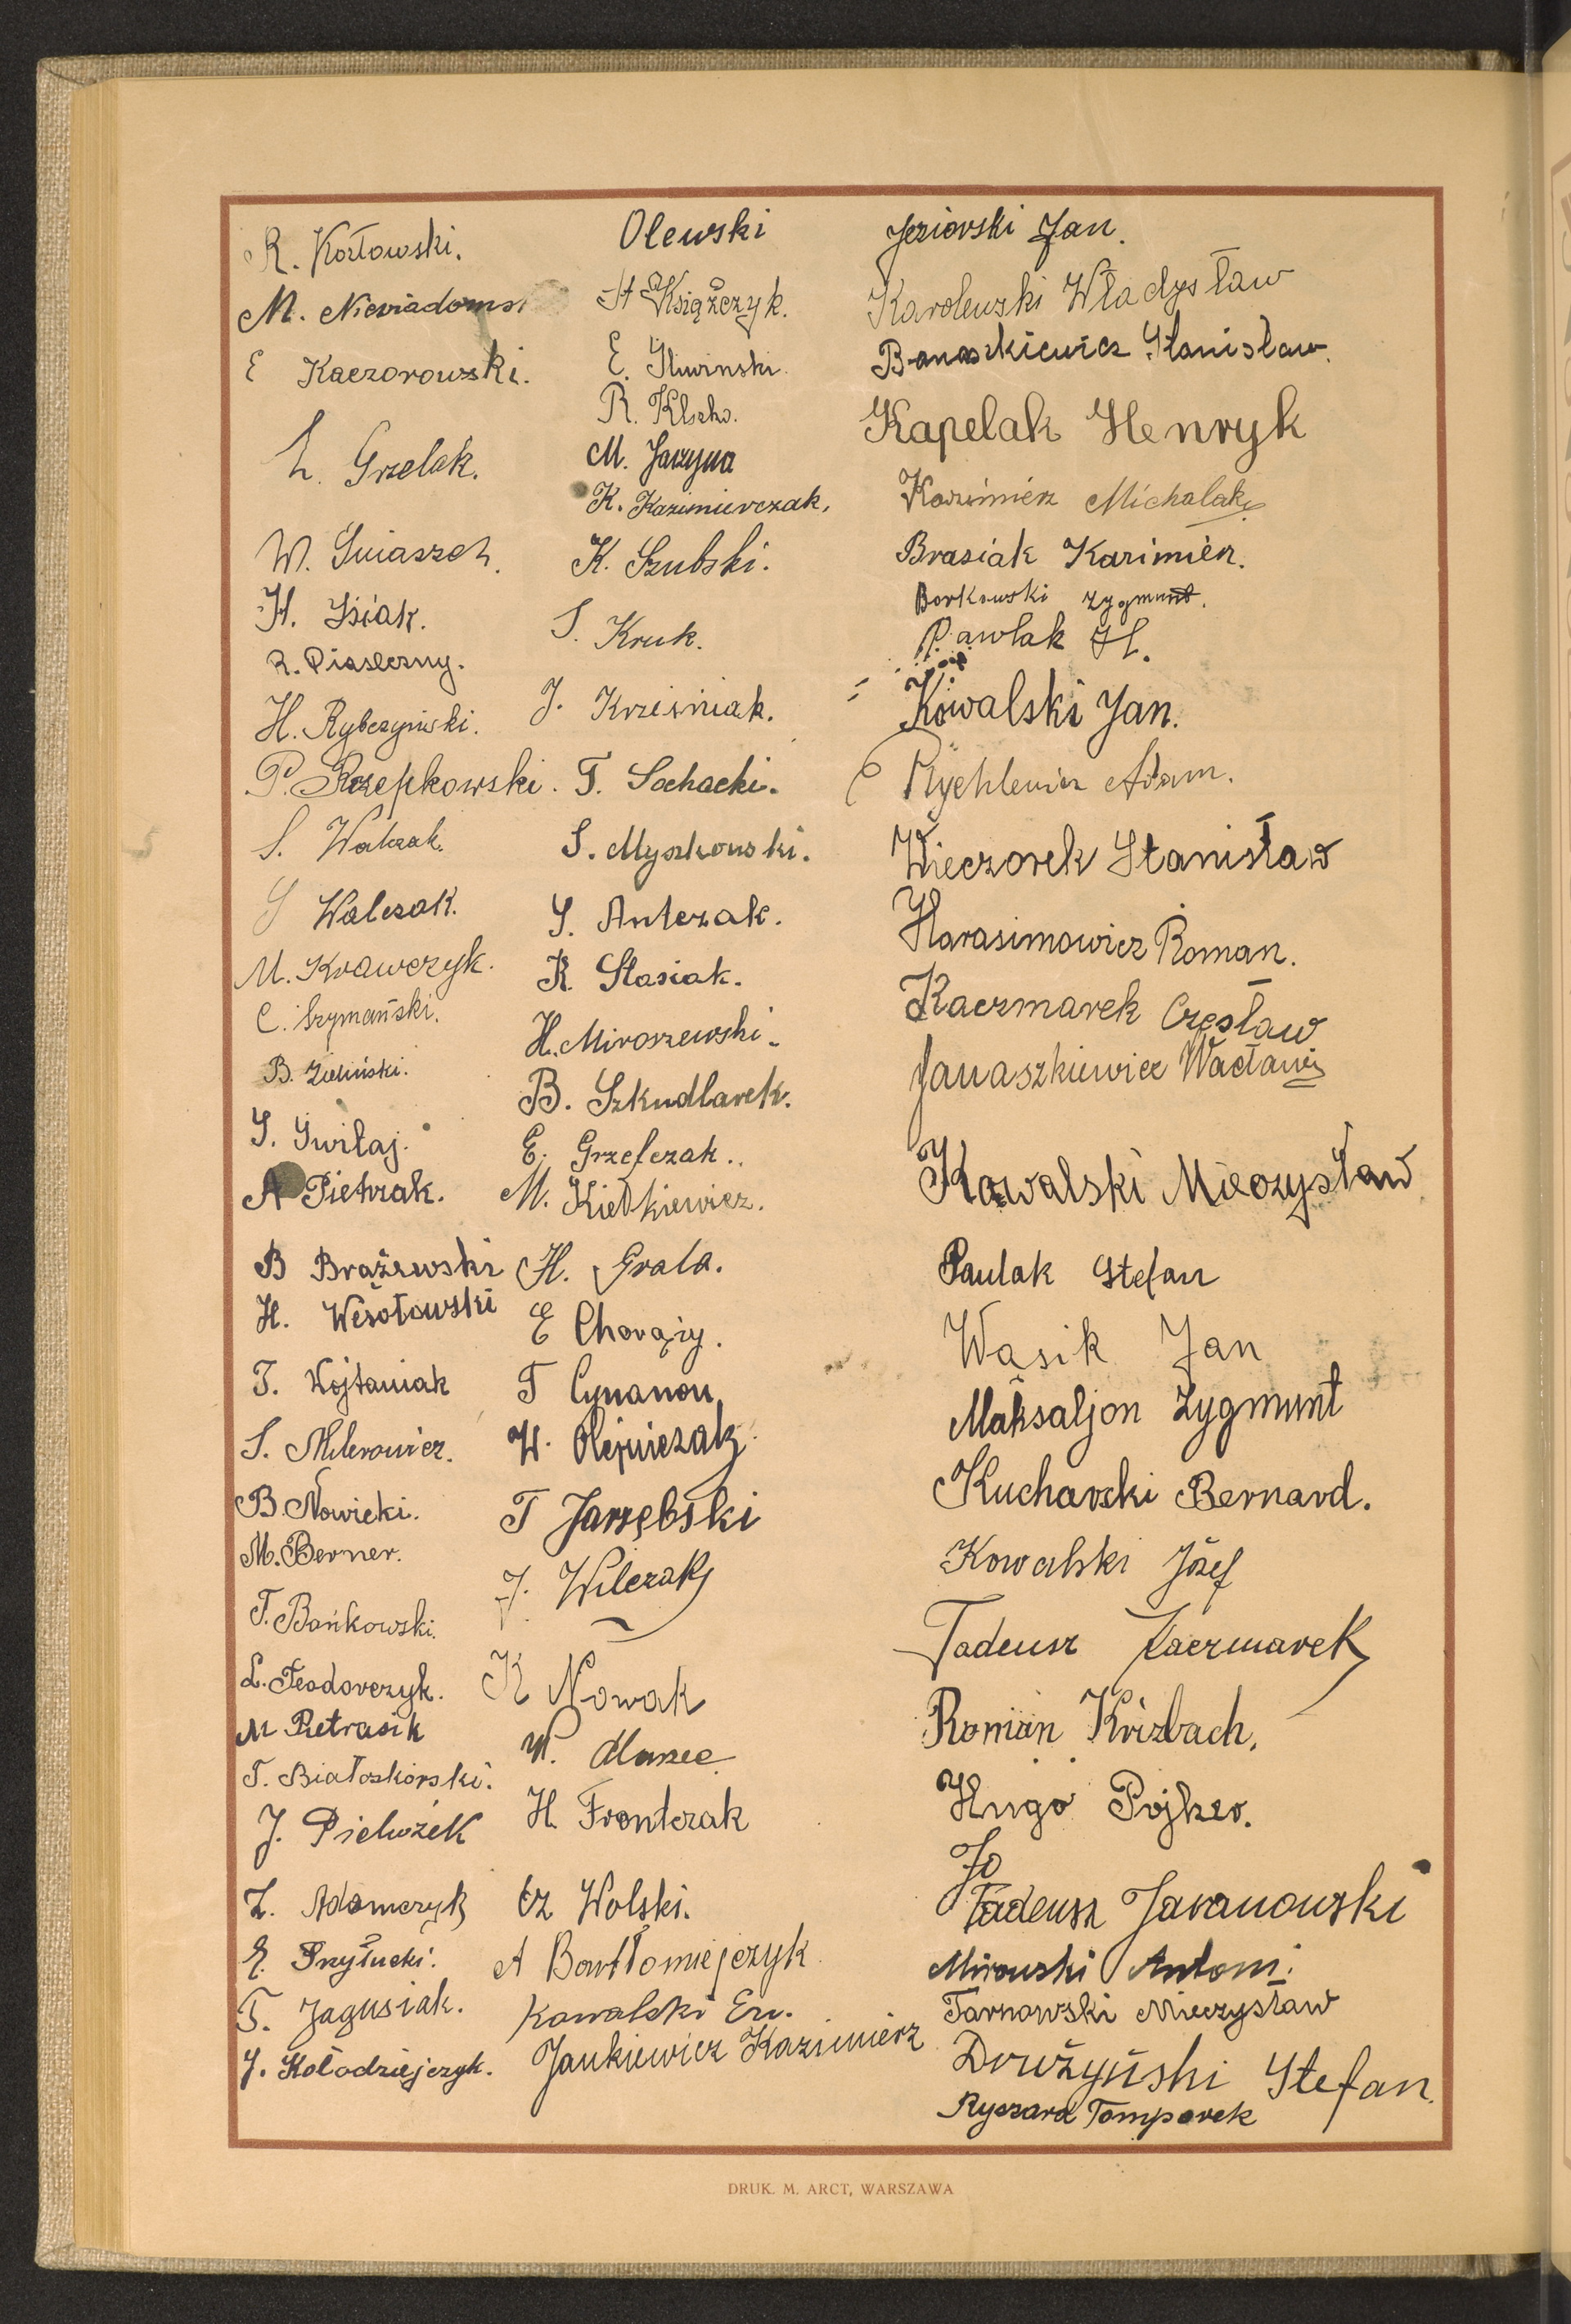 R. Kozłowski.
M. Niewiadoms
E Kaczorowski.
L. Grzelak.
W.
H. Isiak.
R. Piaseczny.
H. Rybczyński.
P. Rzepkowski.
S. Walczak.
S Walczak.
M. Krawczyk.
C. Szymański.
B. Zieliński.
S. Świtaj.
A Pietrzak.
B Brążewski
H. Wesołowski
T. Wojtaniak
S. Milerowicz.
B. Nowicki.
M. Berner.
T. Bańkowski.
L. Teodorczyk.
M Pietrasik
T. Białoskórski.
J.
Z. Adamczyk
E. Przyłucki.
T. Jagusiak.
J. Kołodziejczyk.
Olewski
St Książczyk.
E. Śliwinski.
R.
M. Jarzyna
K. Kazimierczak.
K. Szubski.
S. Kruk.
J. Krześniak.
T. Sochacki.
S. Myszkowski.
S. Antczak.
R. Stasiak.
H. Miroszewski.
B. Szkudlarek.
E. Grzelczak.
M. Kiełkiewicz.
H. Grala.
E Chorąży.
T Cynanon
W. Olejniczak
T Jarzębski
J. Wilczak
K Nowak
W.
H. Frontczak
Cz Wolski.
A Bartłomiejczyk
Kowalski Eu.
Jankiewicz Kazimierz
Jeziorski Jan.
Karolewski Władysław
Banaszkiewicz Stanisław.
Kapelak Henryk
Kazimierz Michalak
Brasiak Kazimierz.
Borkowski Zygmunt.
Pawlak H.
Kowalski Jan.
Rychlewicz Adam.
Wieczorek Stanisław
Harasimowicz Roman.
Kaczmarek Czesław
Janaszkiewicz Wacław
Kowalski Mieczysław
Paulak Stefan
Wąsik Jan
Maksaljon Zygmunt
Kucharski Bernard.
Kowalski Józef
Tadeusz Kaczmarek
Roman Krizbach.
Hugo Pojker.
Ja
Tadeusz Jaranowski
Mirowski Antoni.
Tarnowski Mieczysław
Drużyński Stefan.
Ryszard Tomporek
DRUK. M. ARCT, WARSZAWA